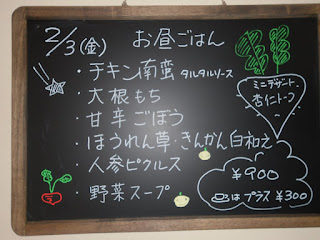 2/3(金) お昼ごはん
・チキン南蛮 タルタルソース
・大根もち
・甘辛ごぼう
・ほうれん草・きんかん白和え
・人参ピクルス
・野菜スープ
ミニデザート
杏仁トーフ
¥900
はプラス ¥300